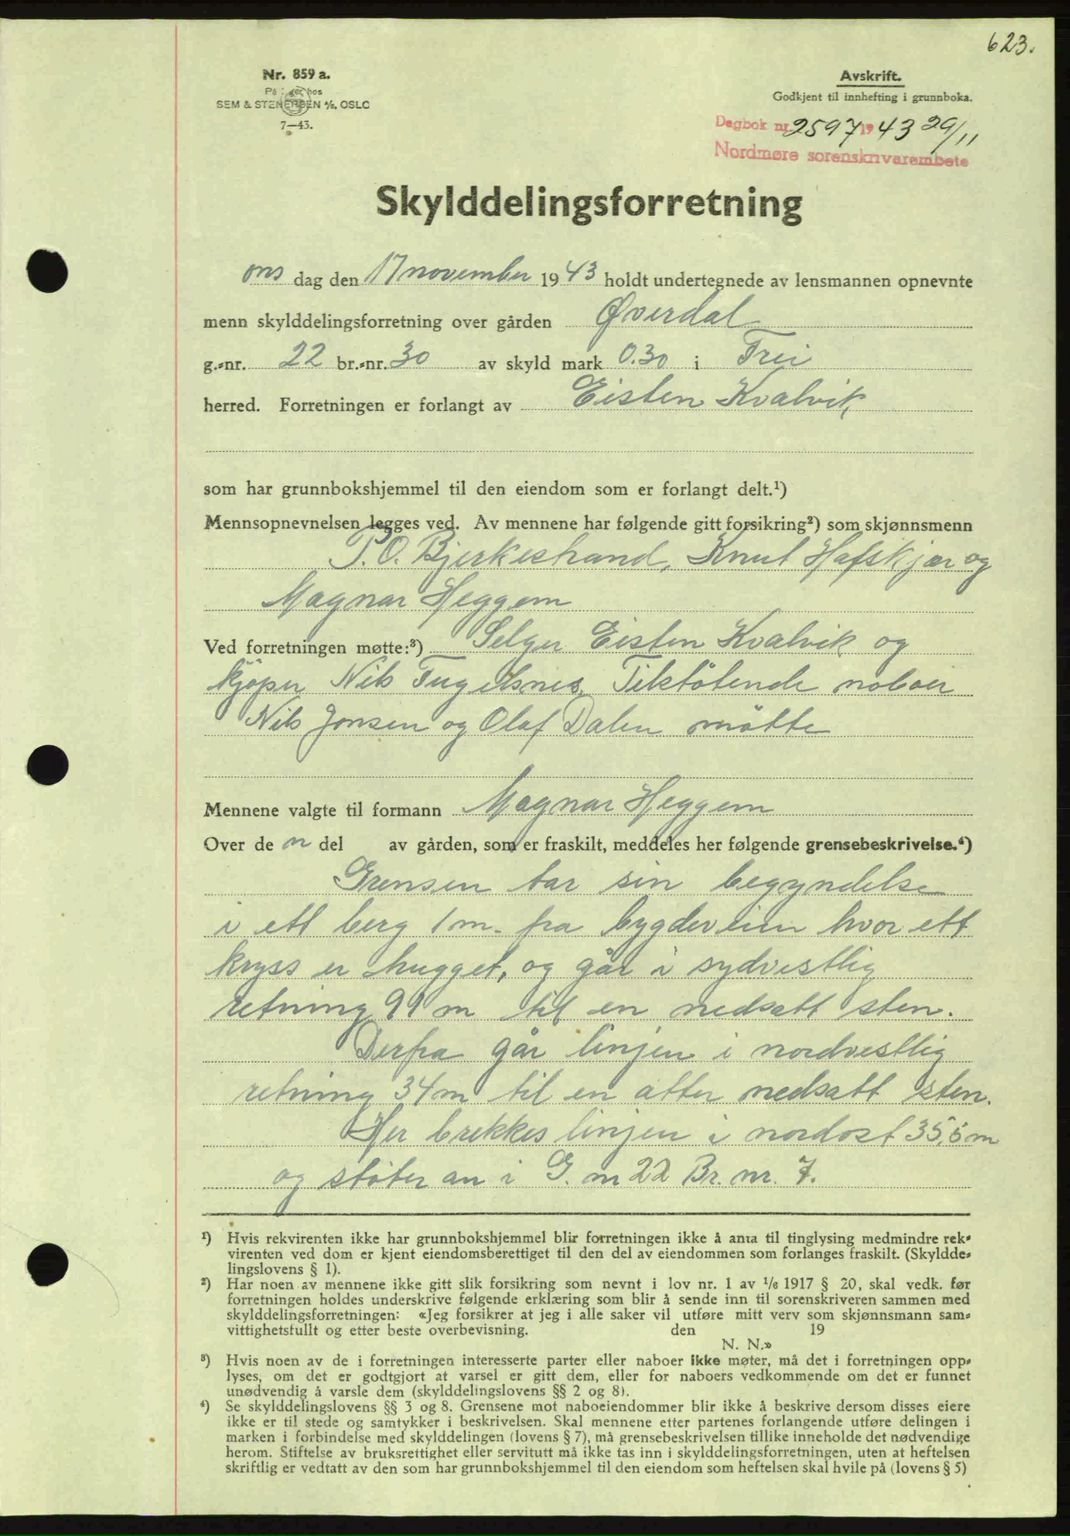 623.
Nr. 859 a.
På lager hos
SEM & STENERSEN A/S, OSLO
7—43.
Avskrift.
Godkjent til innhefting i grunnboka.
Dagbok nr. 2597 1943 29/11
Nordmøre sorenskrivarembete
Skylddelingsforretning
ons dag den 17 november 1943 holdt undertegnede av lensmannen opnevnte
menn skylddelingsforretning over gården Øverdal
g.-nr. 22 br.-nr. 30 av skyld mark 0.30 i Frei
herred. Forretningen er forlangt av Eisten Kvalvik
som har grunnbokshjemmel til den eiendom som er forlangt delt.¹)
Mennsopnevnelsen legges ved. Av mennene har følgende gitt forsikring²) som skjønnsmenn
P. O. Bjerkestrand, Knut Hafskjær og
Magnar Heggem
Ved forretningen møtte:³) Selger Eisten Kvalvik og
kjøper Nils Fugelsnes. Tilstøtende naboer
Nils Jonsen og Olaf Dalen møtte
Mennene valgte til formann Magnar Heggem
Over de n del av gården, som er fraskilt, meddeles her følgende grensebeskrivelse.⁴)
Grensen tar sin begyndelse
i ett berg 1 m. fra bygdeveien hvor ett
kryss er hugget, og går i sydvestlig
retning 99 m til en nedsatt sten.
Derfra går linjen i nordvestlig
retning 34 m til en atter nedsatt sten.
Her brekkes linjen i nordost 35,5 m
og støter an i G. nr 22 Br. nr. 7.
¹) Hvis rekvirenten ikke har grunnbokshjemmel blir forretningen ikke å anta til tinglysing medmindre rek-
virenten ved dom er kjent eiendomsberettiget til den del av eiendommen som forlanges fraskilt. (Skyldde-
lingslovens § 1).
²) Har noen av mennene ikke gitt slik forsikring som nevnt i lov nr. 1 av 1/6 1917 § 20, skal vedk. før
forretningen holdes underskrive følgende erklæring som blir å sende inn til sorenskriveren sammen med
skylddelingsforretningen: «Jeg forsikrer at jeg i alle saker vil utføre mitt verv som skjønnsmann sam-
vittighetsfullt og etter beste overbevisning. den 19
N. N.»
³) Hvis noen av de i forretningen interesserte parter eller naboer ikke møter, må det i forretningen opp-
lyses, om det er godtgjort at varsel er gitt dem, eller for naboers vedkommende om det er funnet
unødvendig å varsle dem (skylddelingslovens §§ 2 og 8).
⁴) Se skylddelingslovens §§ 3 og 8. Grensene mot naboeiendommer blir ikke å beskrive dersom disses eiere
ikke er til stede og samtykker i beskrivelsen. Skal mennene etter partenes forlangende utføre delingen i
marken i forbindelse med skylddelingen (lovens § 7), må grensebeskrivelsen tillike inneholde det nødvendige
herom. Stiftelse av bruksrettighet eller servitutt må ikke tas inn i skylddelingsforretningen, uten at heftelsen
skriftlig er vedtatt av den som har grunnbokshjemmel til den eiendom som heftelsen skal hvile på (lovens § 5)